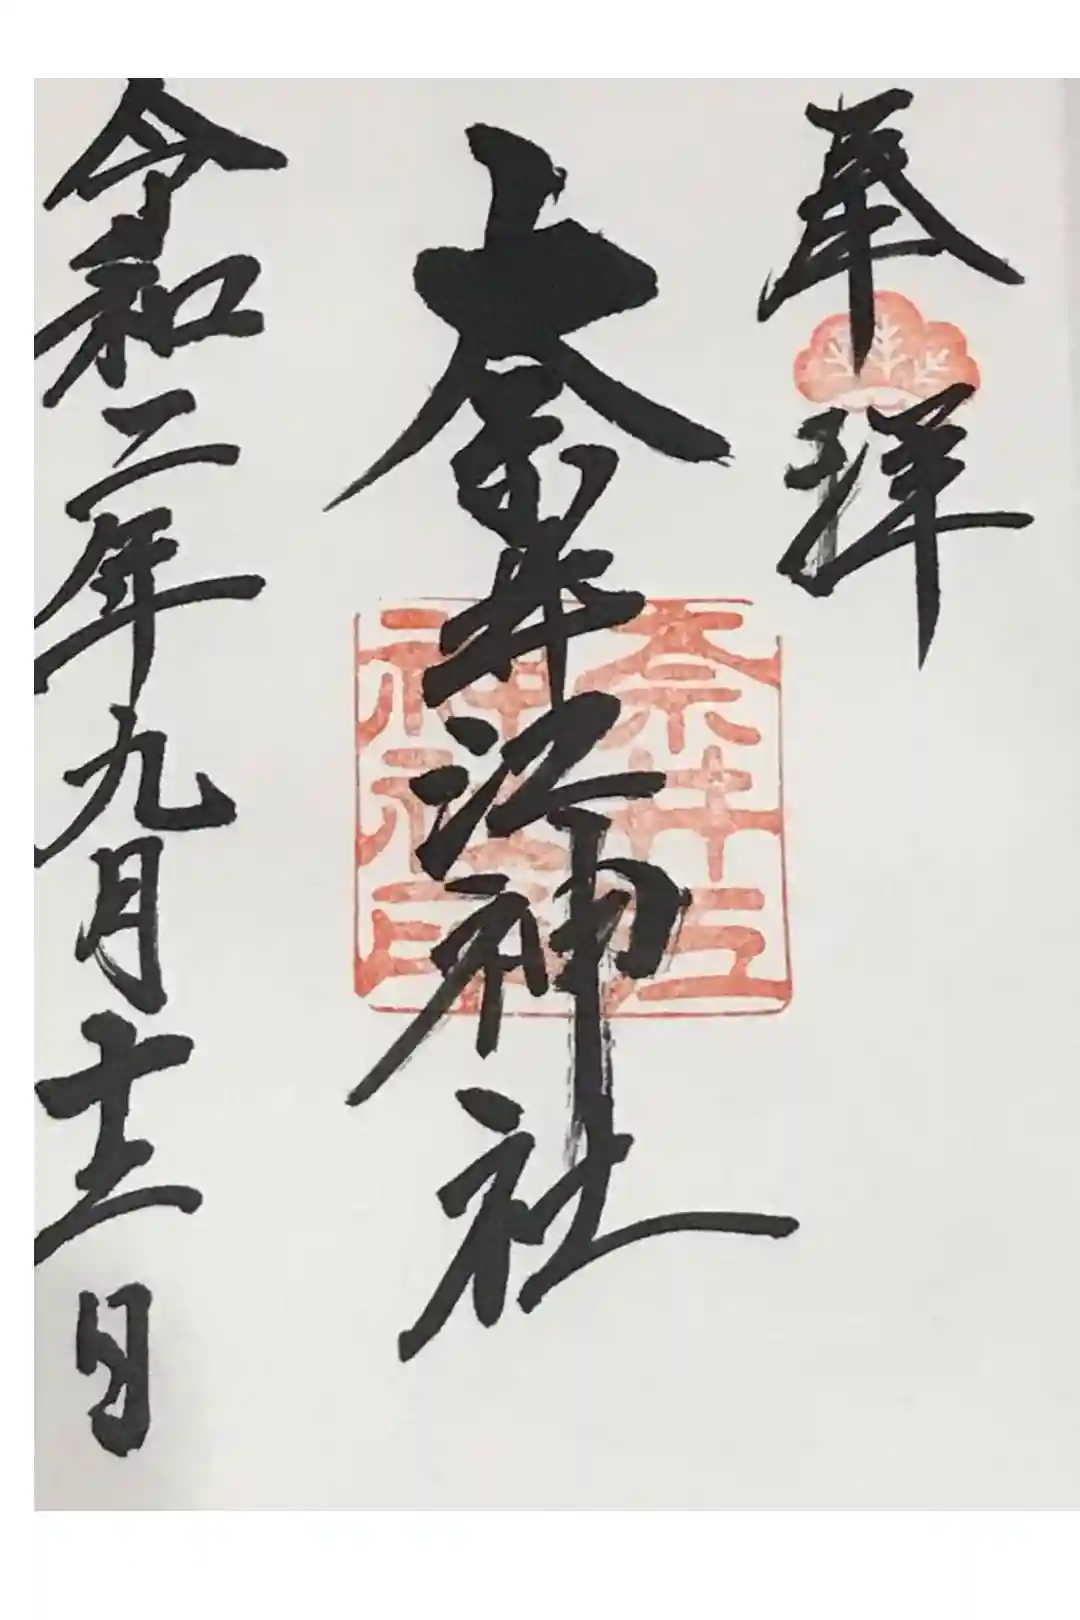 奉拝
奈井江神社
令和二年九月十二日
奈井江
神社印